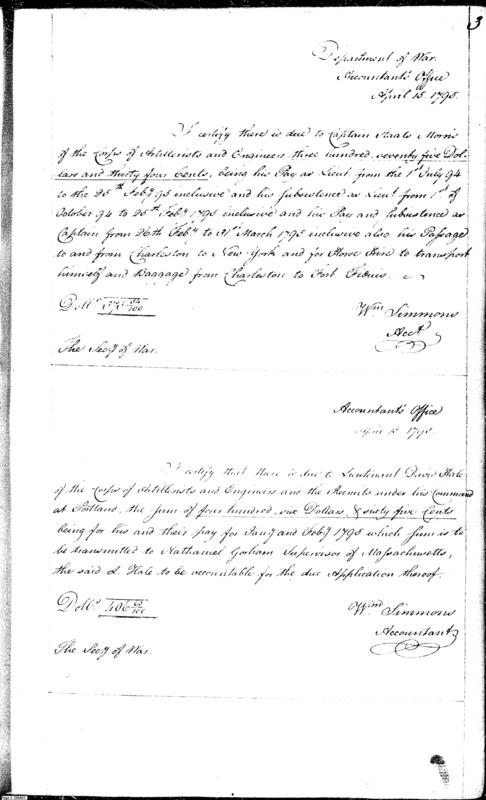 3
Department of War.
Accountant's Office
April 15. 1795.
I certify there is due to Captain Staats Morris
of the Corps of Artillerists and Engineers three hundred, seventy five Dol-
lars and thirty four Cents, being his Pay as Lieut. from the 1st July 94
to the 25th Feby 95 inclusive and his Subsistence as Lieut. from 1st of
October 94 to 25th Feby 1795 inclusive and his Pay and Subsistence as
Captain from 26th Feby to 31st March 1795 inclusive also his Passage
to and from Charleston to New York and for Horse Hire to transport
himself and Baggage from Charleston to Fort
Dolls. 375 34/100
Wm Simmons
Acct
The Secy of War.
Accountant's Office
April 15. 1795.
I certify that there is due to Lieutenant David Hale
of the Corps of Artillerists and Engineers and the Recruits under his Command
at Portland, the sum of four hundred, six Dollars, & sixty five Cents
being for his and their pay for Jany and Feby 1795 which sum is to
be transmitted to Nathaniel Gorham Supervisor of Massachusetts,
the said L. Hale to be accountable for the due Application thereof.
Dolls. 406 65/100
Wm Simmons
Accountant
The Secy of War.